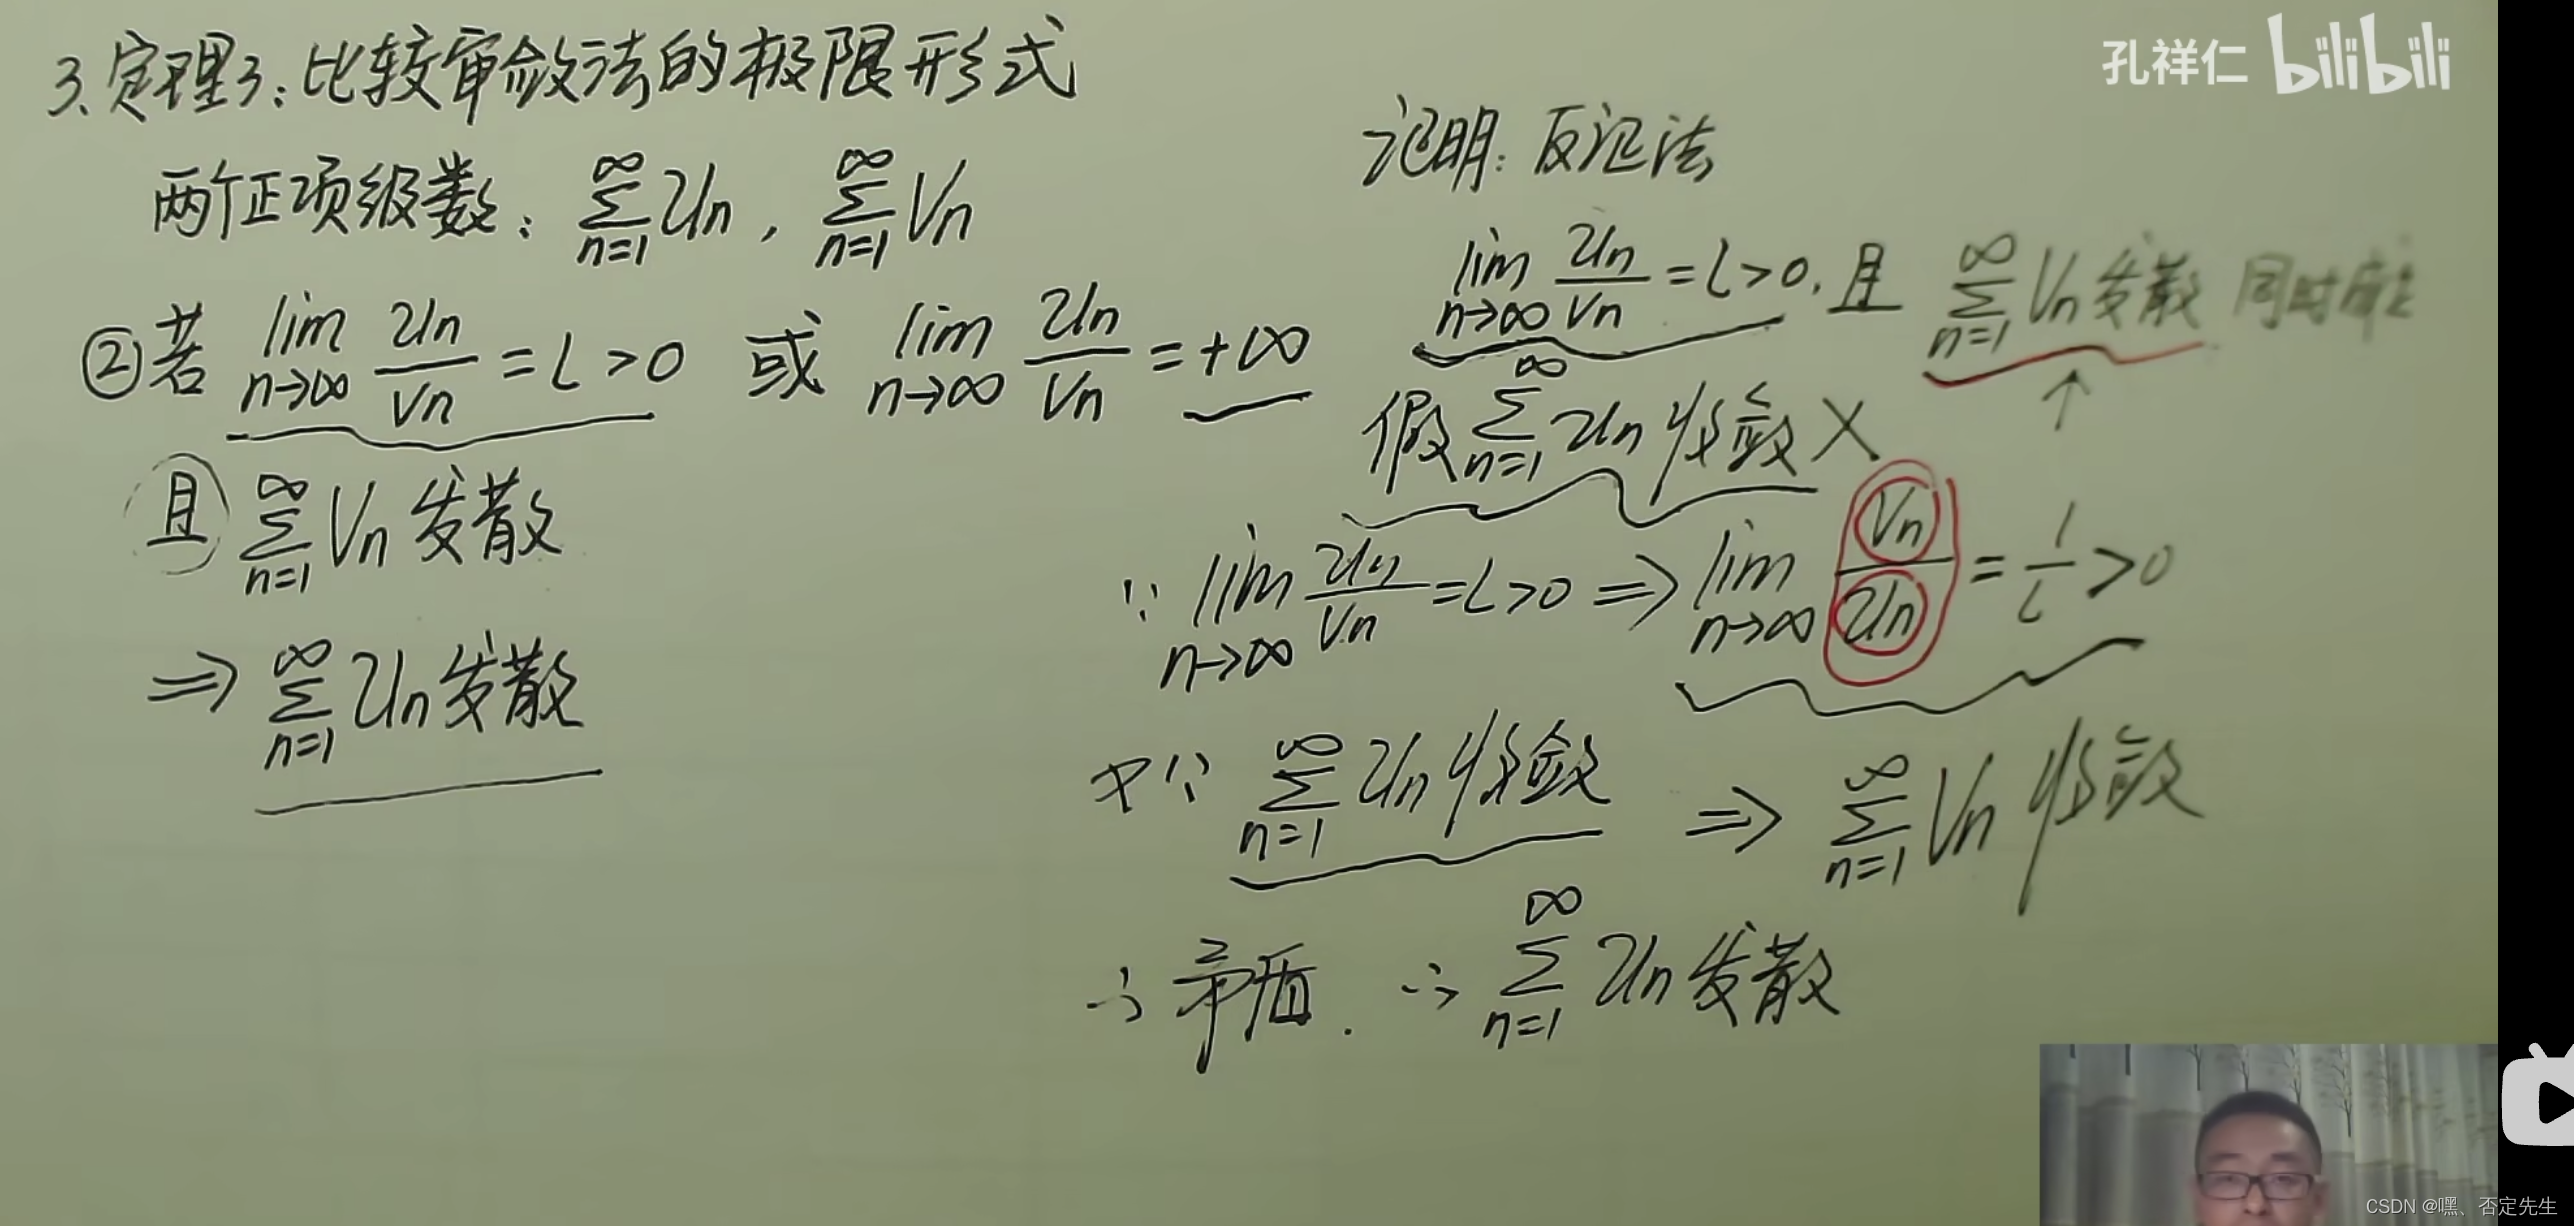 3、定理3：比较审敛法的极限形式
两个正项级数：∞∑n=1 Un，∞∑n=1 Vn
②若 lim n→∞ Un/Vn = l > 0 或 lim n→∞ Un/Vn = +∞
且 ∞∑n=1 Vn 发散
⇒ ∞∑n=1 Un 发散
证明：反证法
lim n→∞ Un/Vn = l > 0，且 ∞∑n=1 Vn 发散 同时
假 ∞∑n=1 Un 收敛 ×
∵ lim n→∞ Un/Vn = l > 0 ⇒ lim n→∞ Vn/Un = 1/l > 0
又∵ ∞∑n=1 Un 收敛 ⇒ ∞∑n=1 Vn 收敛
∴ 矛盾. ∴ ∞∑n=1 Un 发散
孔祥仁 bilibili
CSDN @嘿、否定先生